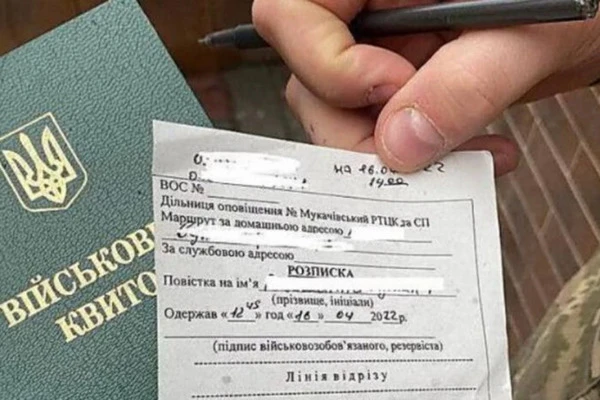 ВІЙСЬКОВ
КВИТО
О.
на 16.04.22
14 00
ВОС №
Дільниця оповіщення № Мукачівський РТЦК да СП
Маршрут за домашньою адресою
За службовою адресою
РОЗПИСКА
Повістка на ім'я
(прізвище, ініціали)
Одержав «12 45» год «16» 04 2022р.
(підпис військовозобов'язаного, резервіста)
Лінія відрізу